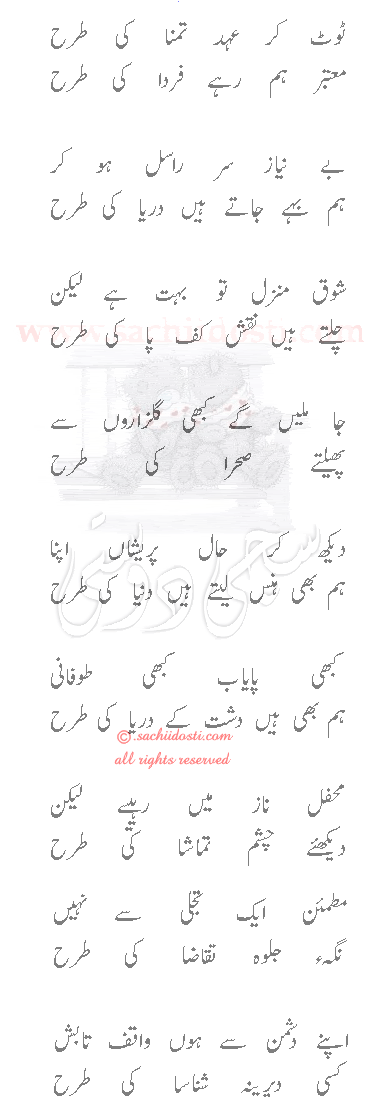 ٹوٹ کر عہد تمنا کی طرح
معتبر ہم رہے فردا کی طرح
بے نیاز سر راسل ہو کر
ہم بہے جاتے ہیں دریا کی طرح
شوق منزل تو بہت ہے لیکن
www.sachiidosti.com
چلتے ہیں نقش کف پا کی طرح
جا ملیں گے کبھی گلزاروں سے
پھیلتے صحرا کی طرح
دیکھ کر حال پریشاں اپنا
سچی دوستی
ہم بھی ہنس لیتے ہیں دنیا کی طرح
کبھی پایاب کبھی طوفانی
ہم بھی ہیں دشت کے دریا کی طرح
© sachiidosti.com
all rights reserved
محفل ناز میں رہیے لیکن
دیکھئے چشم تماشا کی طرح
مطمئن ایک تجلی سے نہیں
نگہء جلوہ تقاضا کی طرح
اپنے دشمن سے ہوں واقف تابش
کسی دیرینہ شناسا کی طرح